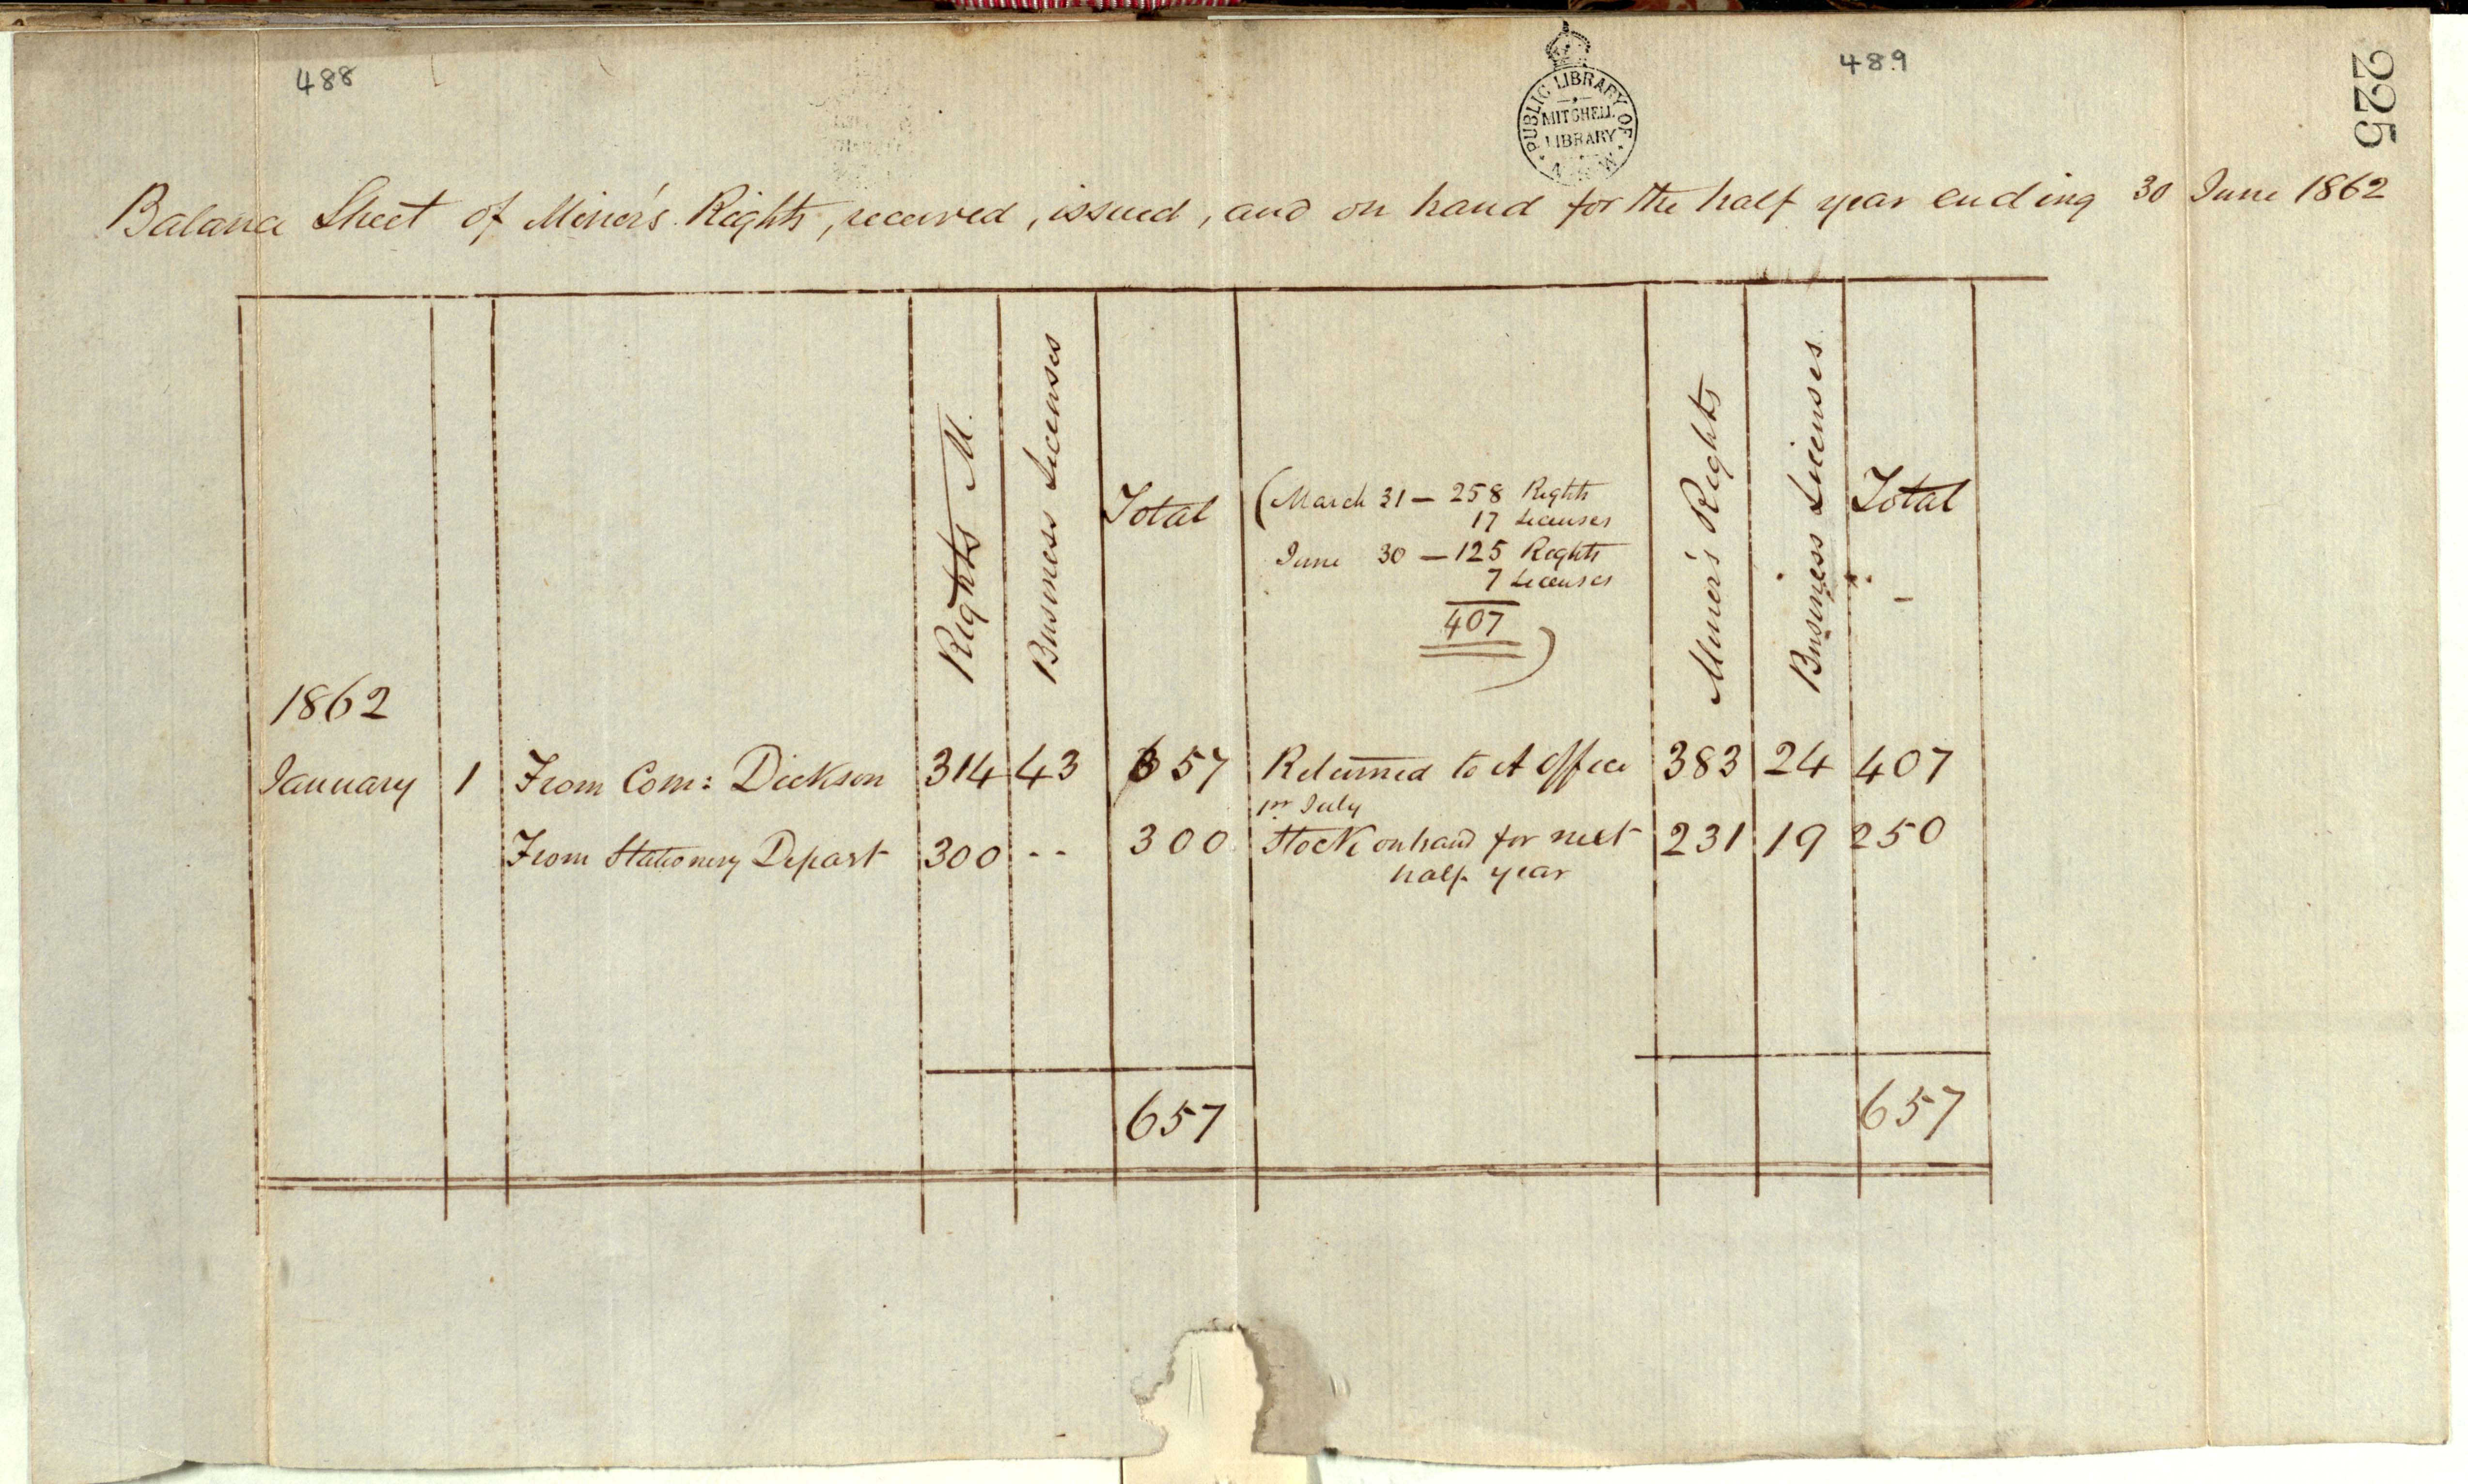 488
489
225
PUBLIC LIBRARY OF N.S.W.
MITCHELL
LIBRARY
Balance Sheet of Miner's Rights, received, issued, and on hand for the half year ending 30 June 1862
Rights M.
Business Licenses
Total
(March 31 — 258 Rights
17 Licenses
June 30 — 125 Rights
7 Licenses
407
)
Miner's Rights
Business Licenses
Total
1862
January 1 From Com: Dickson 314 43 357 Returned to A Office 383 24 407
1st July
From Stationery Depart 300 -- 300 Stock on hand for next 231 19 250
half year
657 657